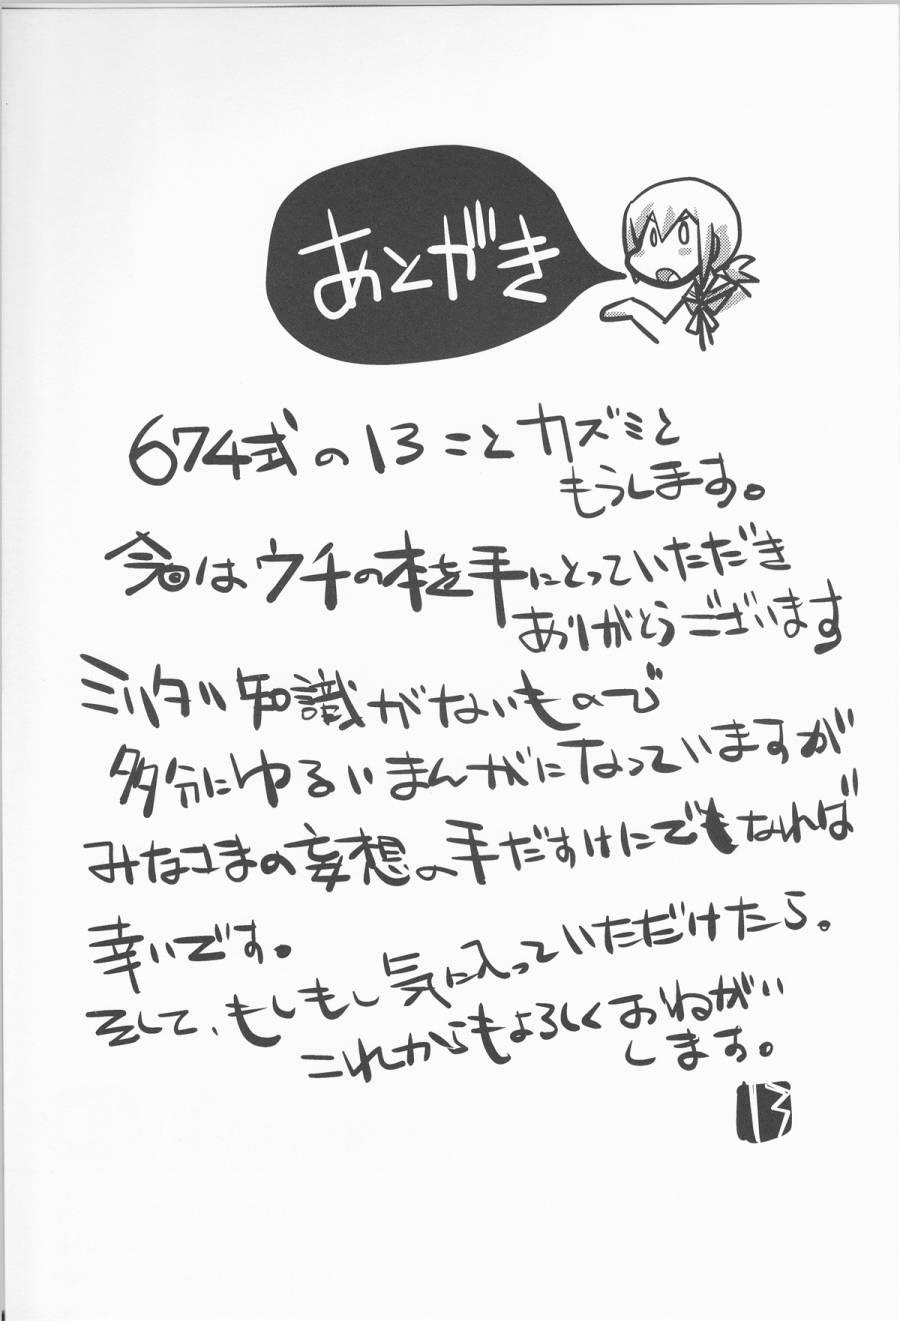 あとがき
674式の13ことカズミと
もうします。
今回はウチの本を手にとっていただき
ありがとうございます
ミリタリ知識がないもので
多分にゆるいまんがになっていますが
みなさまの妄想の手だすけにでもなれば
幸いです。
そして、もしもし気に入っていただけたら。
これからもよろしくおねがい
します。
13